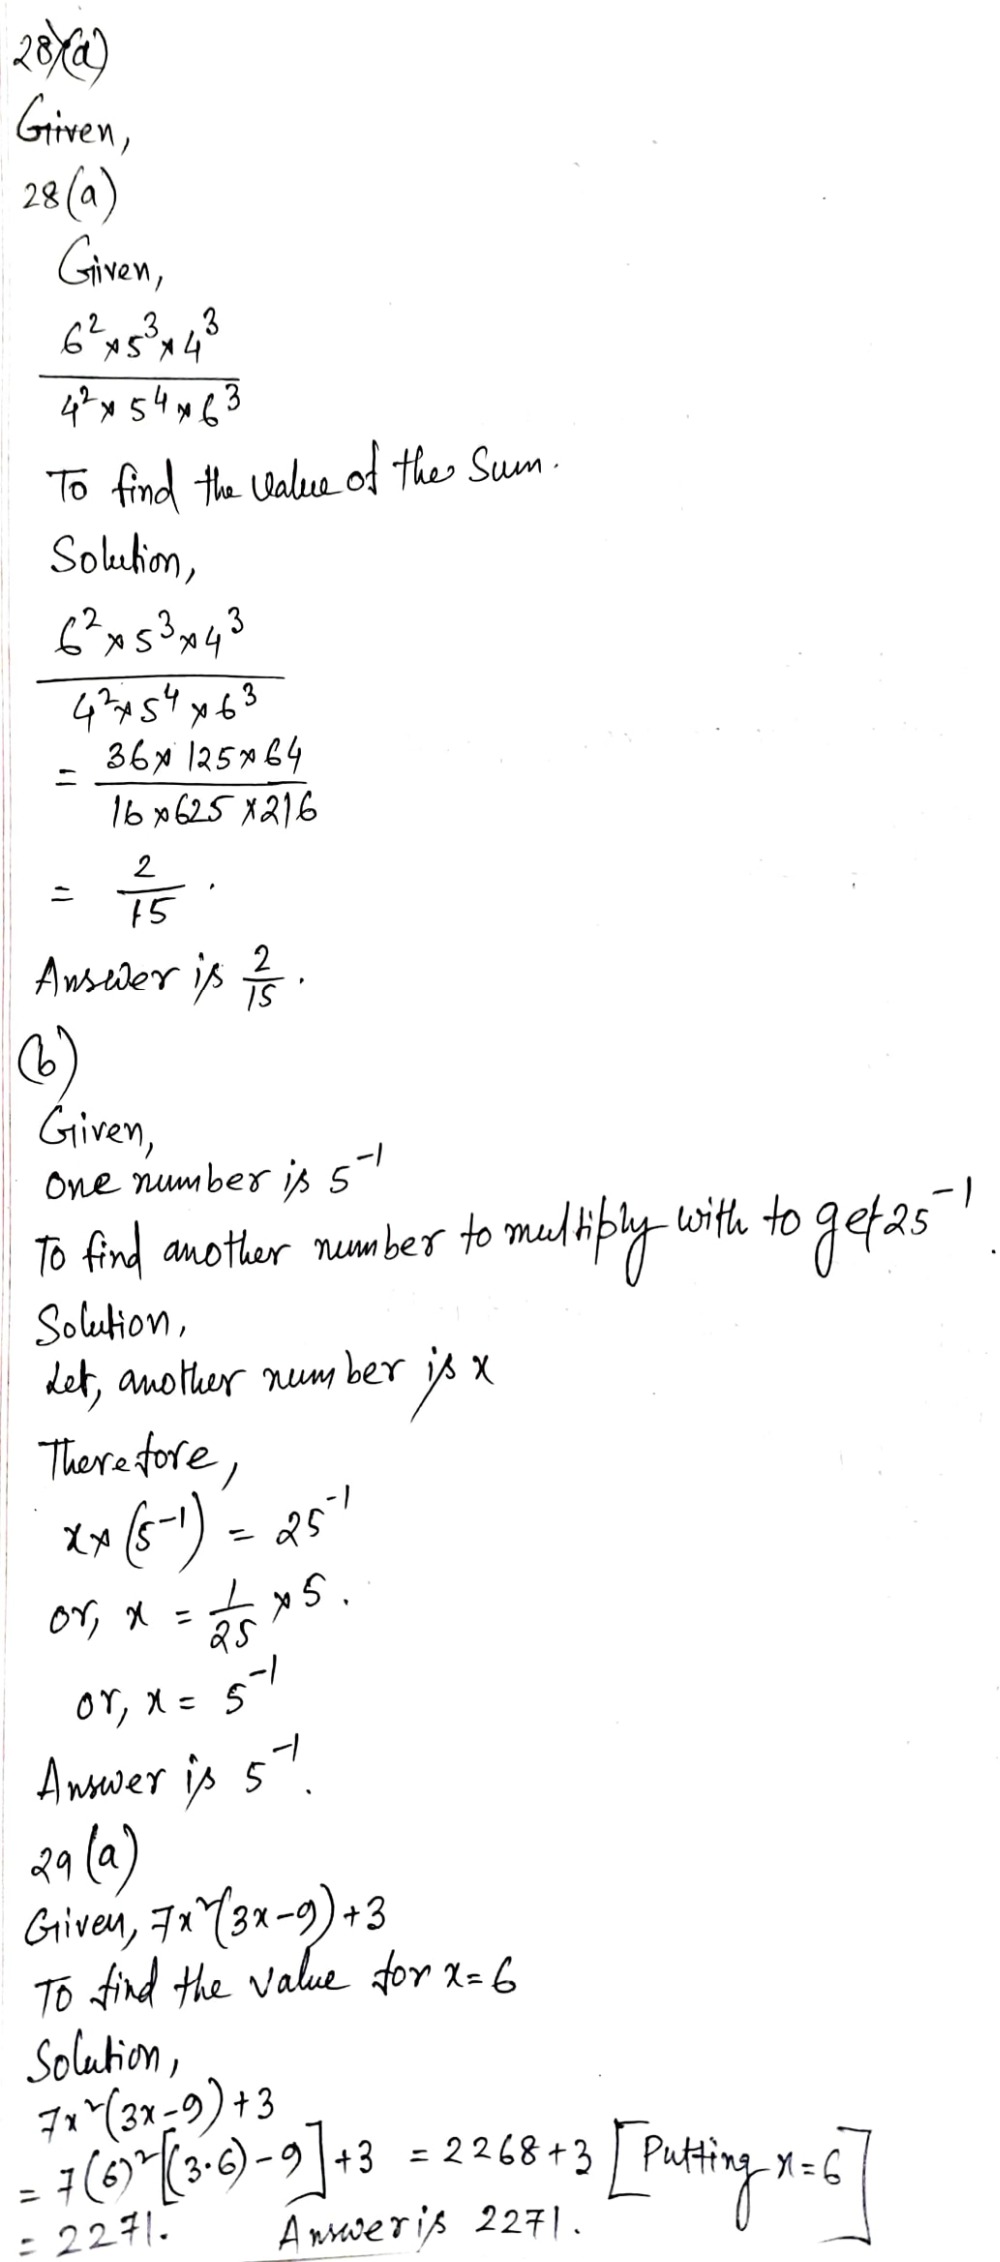 28)(a)
Given,
28(a)
Given,
6² × 5³ × 4³
4² × 5⁴ × 6³
To find the value of the sum.
Solution,
6² × 5³ × 4³
4² × 5⁴ × 6³
= 36 × 125 × 64
16 × 625 × 216
= 2
15 .
Answer is 2/15 .
(b)
Given,
one number is 5⁻¹
To find another number to multiply with to get 25⁻¹.
Solution,
Let, another number is x
Therefore,
x × (5⁻¹) = 25⁻¹
or, x = 1/25 × 5.
or, x = 5⁻¹
Answer is 5⁻¹.
29(a)
Given, 7x²(3x-9)+3
To find the value for x=6
Solution,
7x²(3x-9)+3
= 7(6)²[(3·6)-9]+3 = 2268+3 [Putting x=6]
= 2271. Answer is 2271.